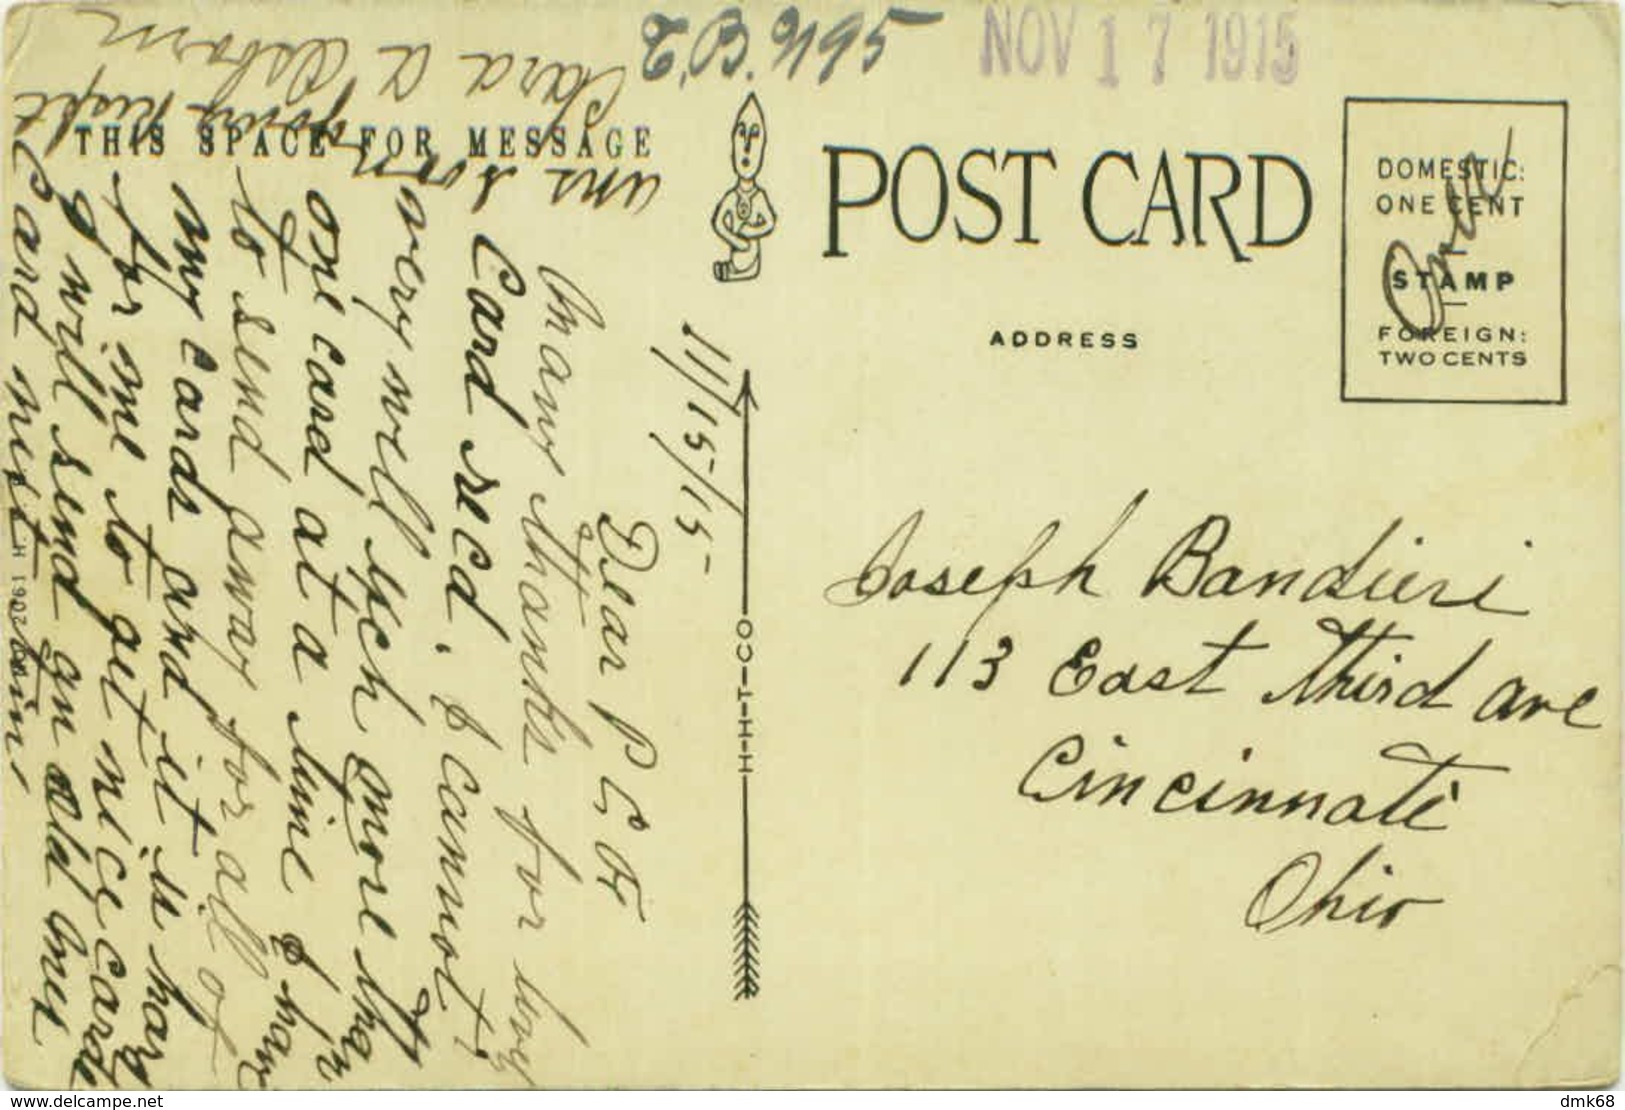 E.B. 9195
NOV 17 1915
THIS SPACE FOR MESSAGE
POST CARD
ADDRESS
DOMESTIC:
ONE CENT
STAMP
FOREIGN:
TWO CENTS
H-H-T-CO
H 1902
Joseph Bandieri
113 East Third ave
Cincinnati
Ohio
11/15/15
Dear P C Ex
Many thanks for
Card recd. I cannot
very well Xch more than
one card at a time I have
to send away for all of
my cards and it is hard
for me to get nice cards
I will send an old
Card next time
ans soon
yours
Clara A